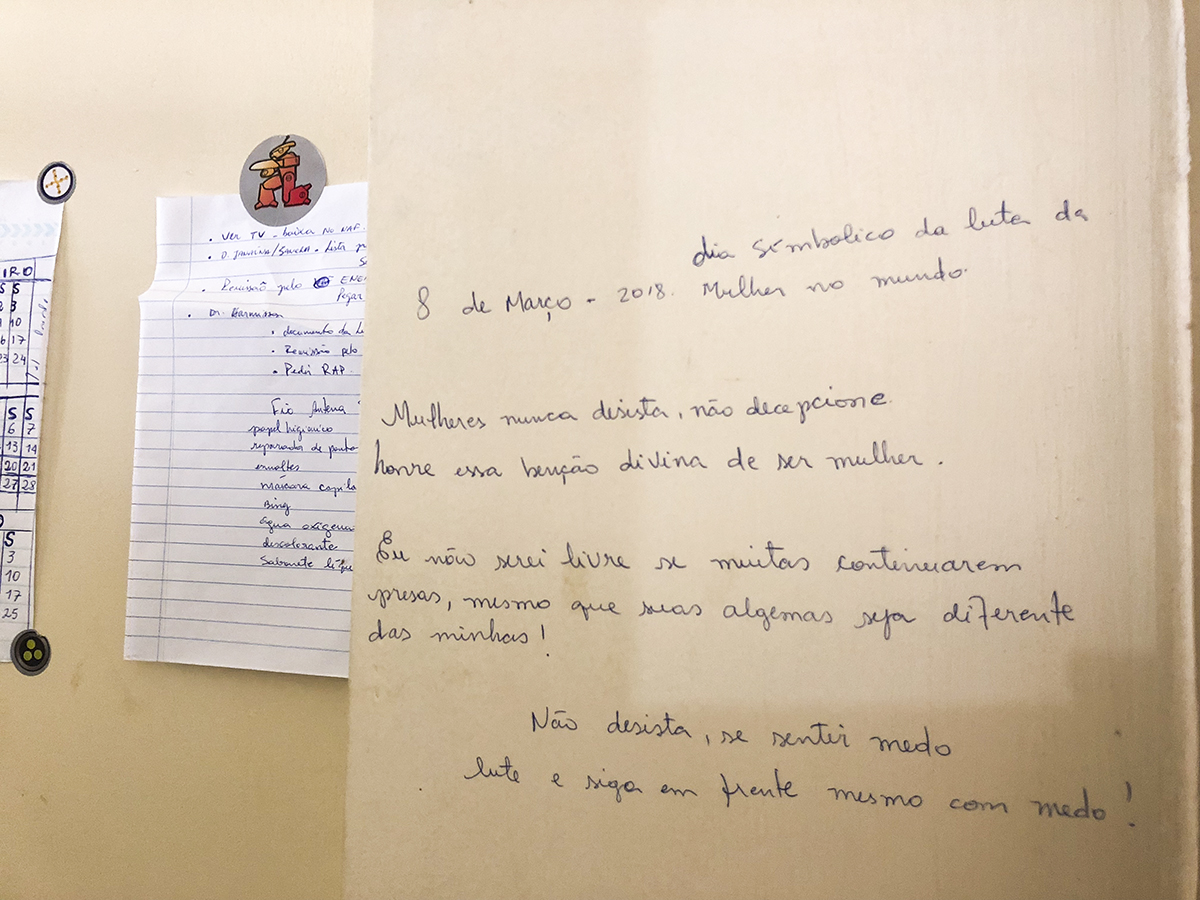 IRO
S S
10
17
23 24
S S
6 7
13 14
20 21
27 28
S
3
10
17
25
. Ver TV - baixa no NAF.
. Lista
. Remissão pelo ENE
Pegar
. Dr.
. documento da
. Remissão pelo
. Pedir RAP.
Fio Antena
papel higienico
reparador de ponta
esmaltes
máscara capila
Bing
agua oxigena
descolorante
Sabonete liqui
dia simbolico da luta da
8 de Março - 2018. Mulher no mundo.
Mulheres nunca desista, não decepcione.
honre essa benção divina de ser mulher.
Eu não serei livre se muitas continuarem
presas, mesmo que suas algemas seja diferente
das minhas!
Não desista, se sentir medo
lute e siga em frente mesmo com medo!